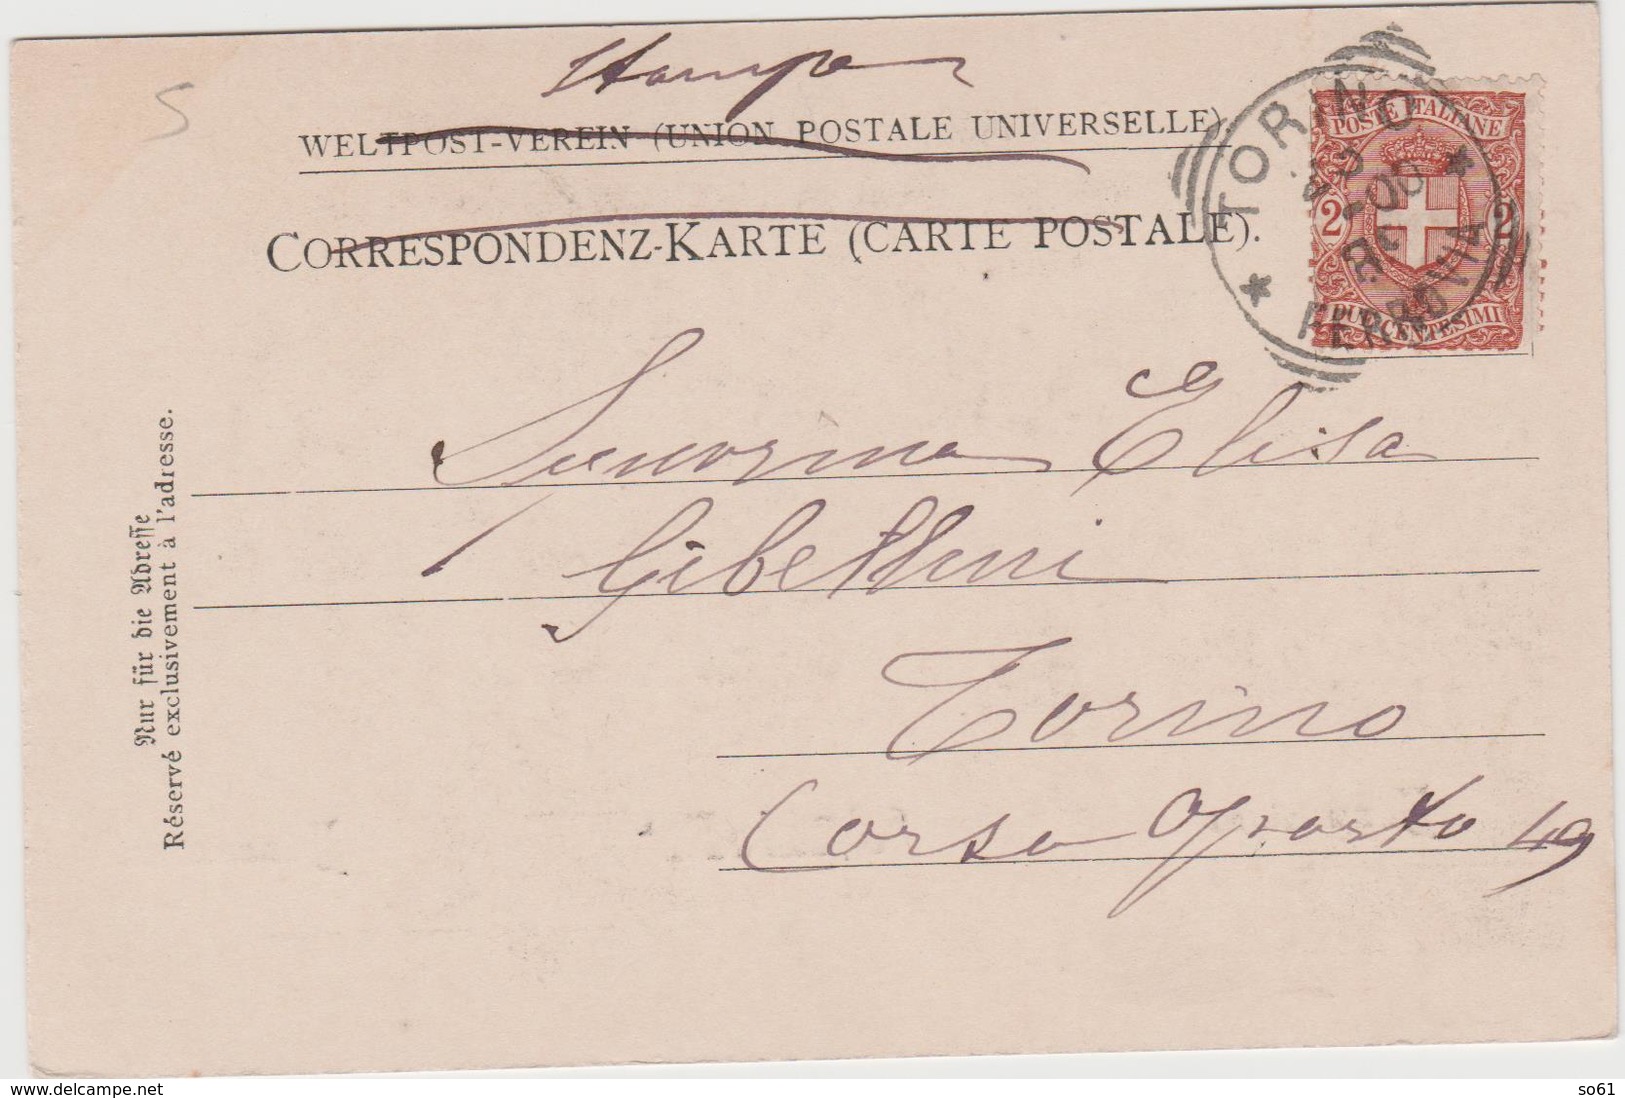 5
Stampe
WELTPOST-VEREIN (UNION POSTALE UNIVERSELLE).
CORRESPONDENZ-KARTE (CARTE POSTALE).
TORINO
FERROVIA
POSTE ITALIANE
2 2
DUE CENTESIMI
Signorina Elisa
Gibellini
Torino
Corso Oporto 49
Nur für die Adresse
Réservé exclusivement à l'adresse.
www.delcampe.net
so61